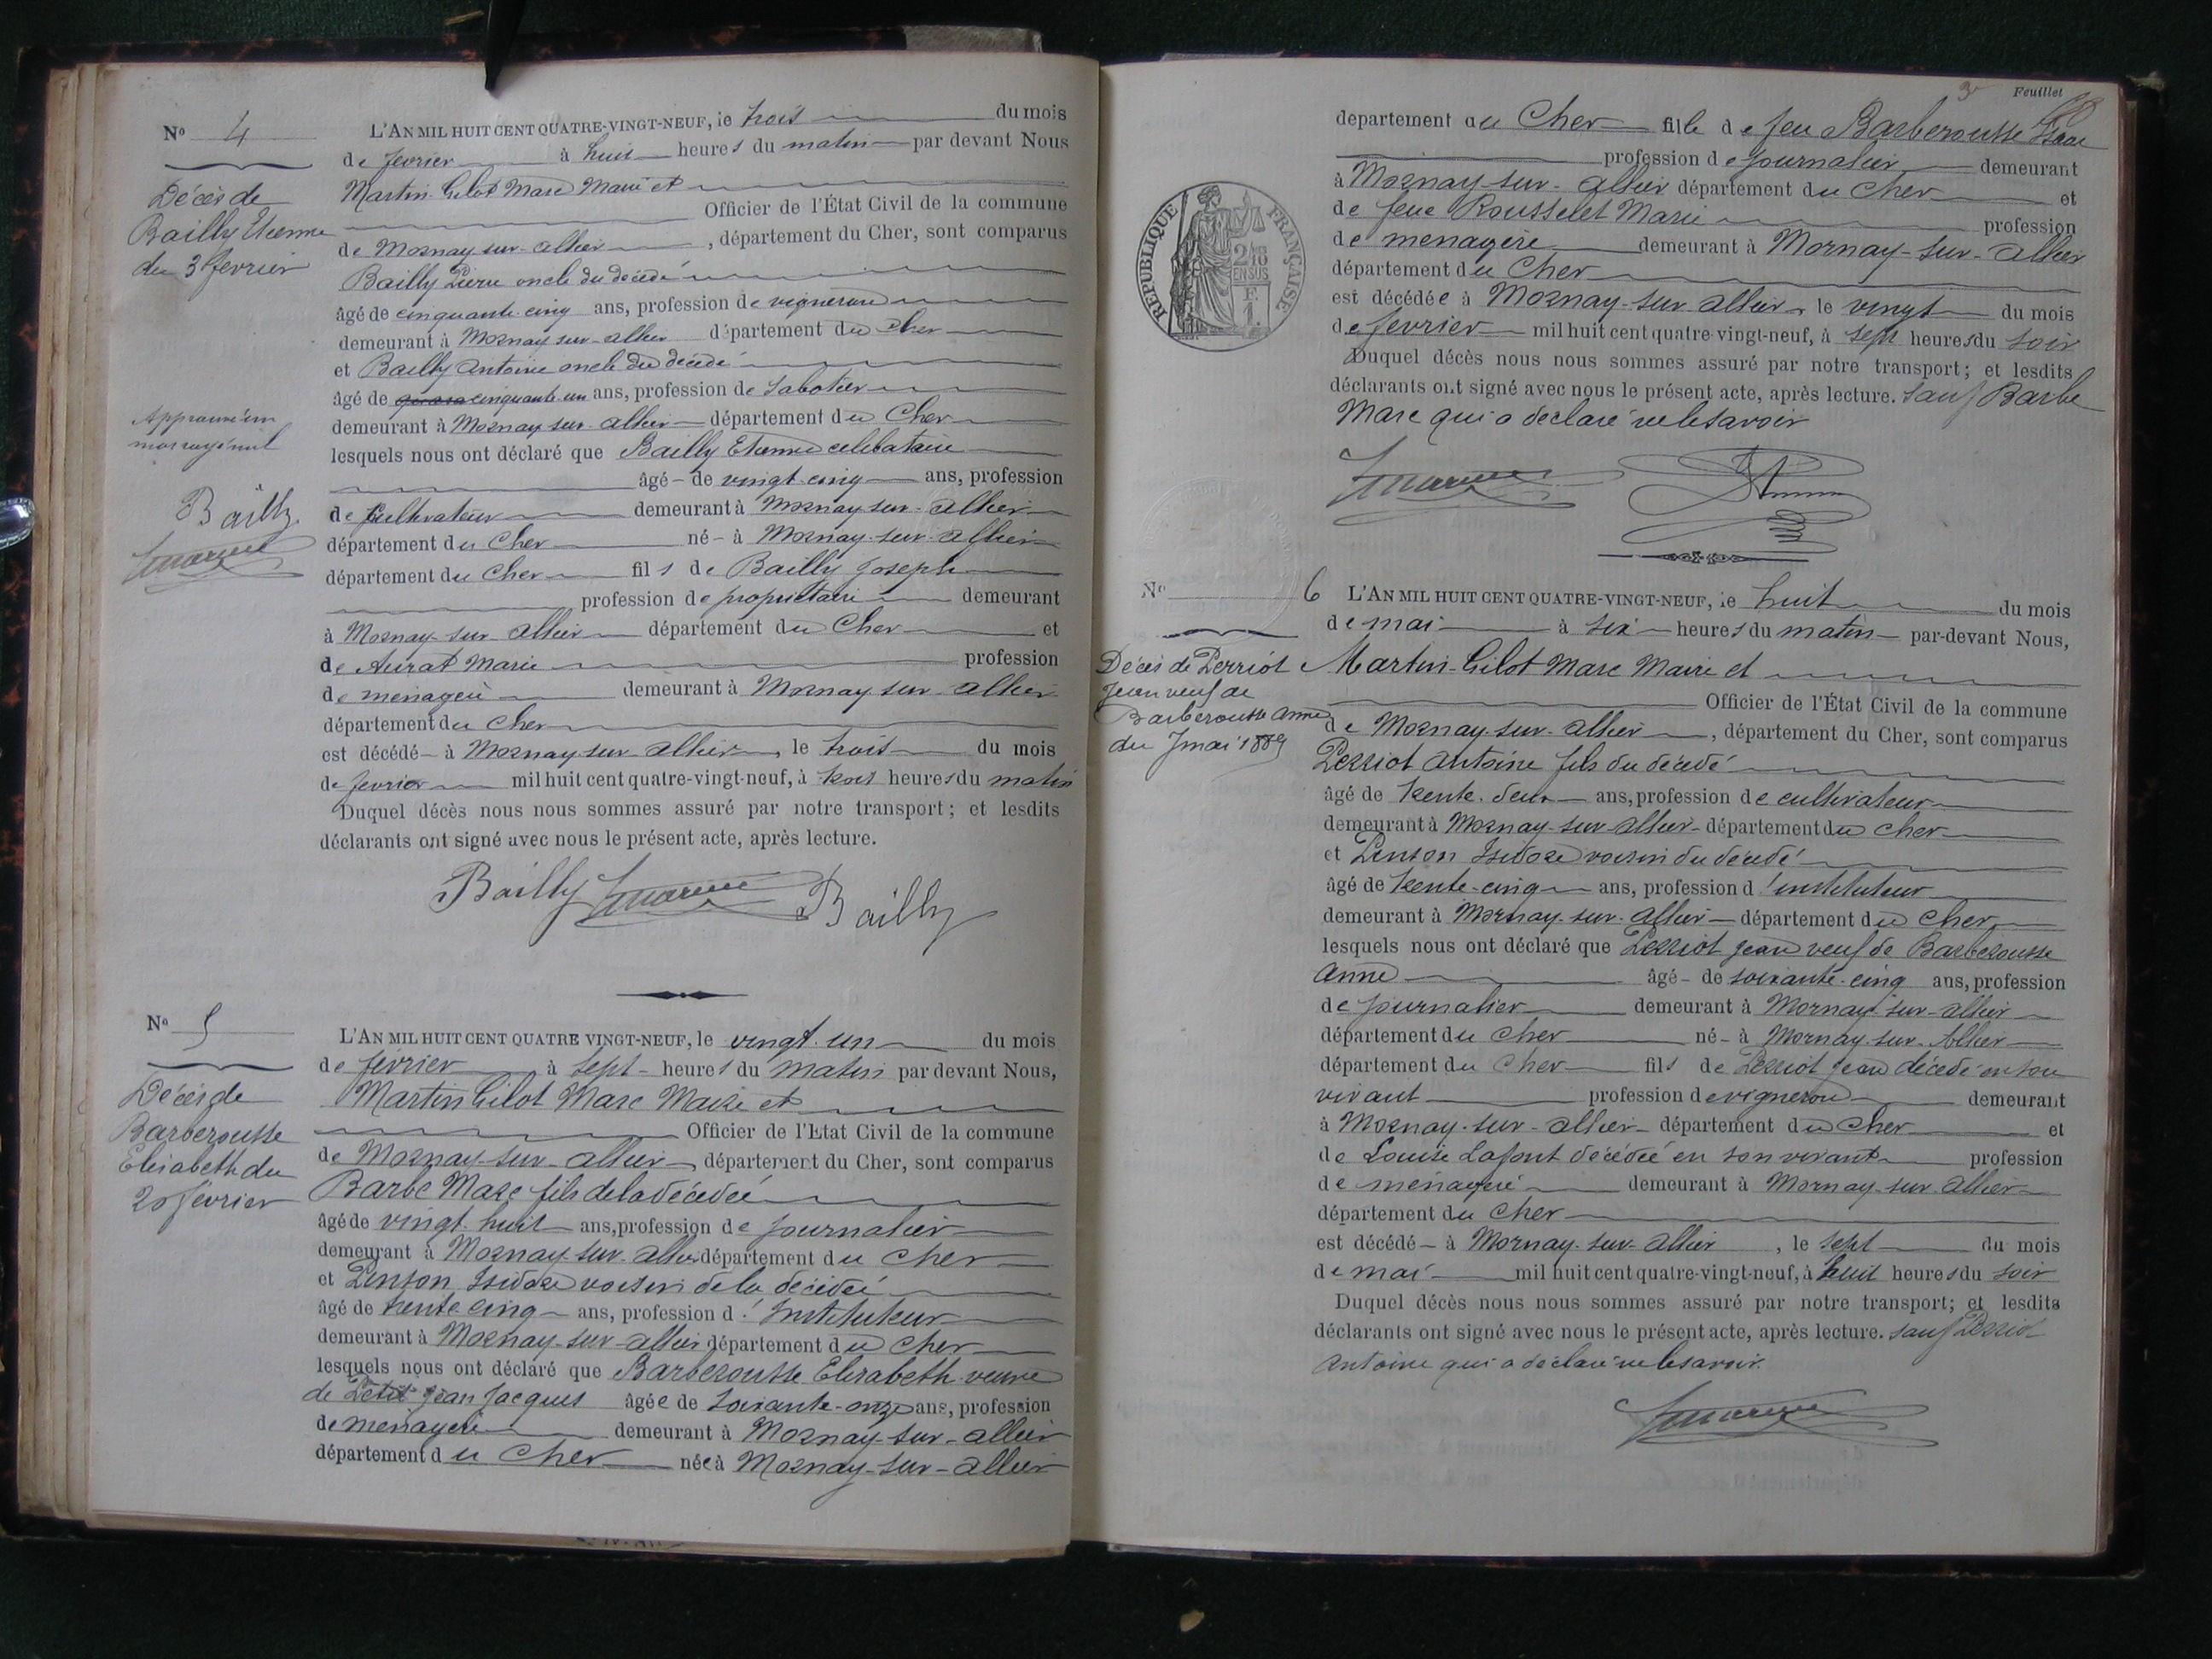 No 4
Décès de
Bailly Etienne
du 3 fevrier
Approuvé un
mot rayé nul
Bailly
L'AN MIL HUIT CENT QUATRE-VINGT-NEUF, le trois du mois
de fevrier à huit heures du matin par devant Nous
Martin-Gilot Marc Maire et
Officier de l'État Civil de la commune
de Mornay sur-allier, département du Cher, sont comparus
Bailly Pierre oncle du décédé
âgé de cinquante-cinq ans, profession de vigneron
demeurant à Mornay sur-allier département du Cher
et Bailly Antoine oncle du décédé
âgé de cinquante un ans, profession de Sabotier
demeurant à Mornay sur-allier département du Cher
lesquels nous ont déclaré que Bailly Etienne celibataire
âgé de vingt-cinq ans, profession
de cultivateur demeurant à Mornay sur-allier
département du Cher né à Mornay-sur-allier
département du Cher fils de Bailly Joseph
profession de propriétaire demeurant
à Mornay-sur-allier département du Cher et
de Aurat Marie profession
de menagere demeurant à Mornay sur-allier
département du Cher
est décédé à Mornay sur-allier, le trois du mois
de fevrier mil huit cent quatre-vingt-neuf, à trois heures du matin
Duquel décès nous nous sommes assuré par notre transport; et lesdits
déclarants ont signé avec nous le présent acte, après lecture.
Bailly Bailly
No 5
Décès de
Barberousse
Elisabeth du
20 février
L'AN MIL HUIT CENT QUATRE VINGT-NEUF, le vingt-un du mois
de février à sept heures du matin par devant Nous,
Martin Gilot Marc Maire et
Officier de l'Etat Civil de la commune
de Mornay-sur-allier, département du Cher, sont comparus
Barbe Marc fils de la décédée
âgé de vingt-huit ans, profession de journalier
demeurant à Mornay-sur-allier département du Cher
et Pinson Isidore voisin de la décédée
âgé de trente cinq ans, profession d'Instituteur
demeurant à Mornay-sur-allier département du Cher
lesquels nous ont déclaré que Barberousse Elisabeth veuve
de Petit Jean Jacques âgée de soixante-onze ans, profession
de menagere demeurant à Mornay-sur-allier
département du Cher née à Mornay-sur-allier
3 Feuillet
département du Cher fille de feu Barberousse Isaac
profession de journalier demeurant
à Mornay-sur-allier département du Cher et
de feue Rousselet Marie profession
de menagère demeurant à Mornay-sur-allier
département du Cher
est décédée à Mornay-sur-allier, le vingt du mois
de fevrier mil huit cent quatre-vingt-neuf, à sept heures du soir
Duquel décès nous nous sommes assuré par notre transport; et lesdits
déclarants ont signé avec nous le présent acte, après lecture. sauf Barbe
Marc qui a déclaré ne le savoir
REPUBLIQUE FRANÇAISE
2/10
EN SUS
F.
1.
No 6
Décès de Perriot
Jean veuf de
Barberousse Anne
du 7 mai 1889
L'AN MIL HUIT CENT QUATRE-VINGT-NEUF, le huit du mois
de mai à six heures du matin par-devant Nous,
Martin-Gilot Marc Maire et
Officier de l'État Civil de la commune
de Mornay-sur-allier, département du Cher, sont comparus
Perriot Antoine fils du décédé
âgé de trente-deux ans, profession de cultivateur
demeurant à Mornay-sur-allier département du Cher
et Pinson Isidore voisin du décédé
âgé de trente-cinq ans, profession d'instituteur
demeurant à Mornay-sur-allier département du Cher
lesquels nous ont déclaré que Perriot Jean veuf de Barberousse
Anne âgé de soixante-cinq ans, profession
de journalier demeurant à Mornay-sur-allier
département du Cher né à Mornay-sur-Allier
département du Cher fils de Perriot Jean décédé en son
vivant profession de vigneron demeurant
à Mornay-sur-allier département du Cher et
de Louise Lafont décédée en son vivant profession
de menagère demeurant à Mornay-sur-allier
département du Cher
est décédé à Mornay-sur-allier, le sept du mois
de mai mil huit cent quatre-vingt-neuf, à huit heures du soir
Duquel décès nous nous sommes assuré par notre transport; et lesdits
déclarants ont signé avec nous le présent acte, après lecture. sauf Perriot
Antoine qui a déclaré ne le savoir.